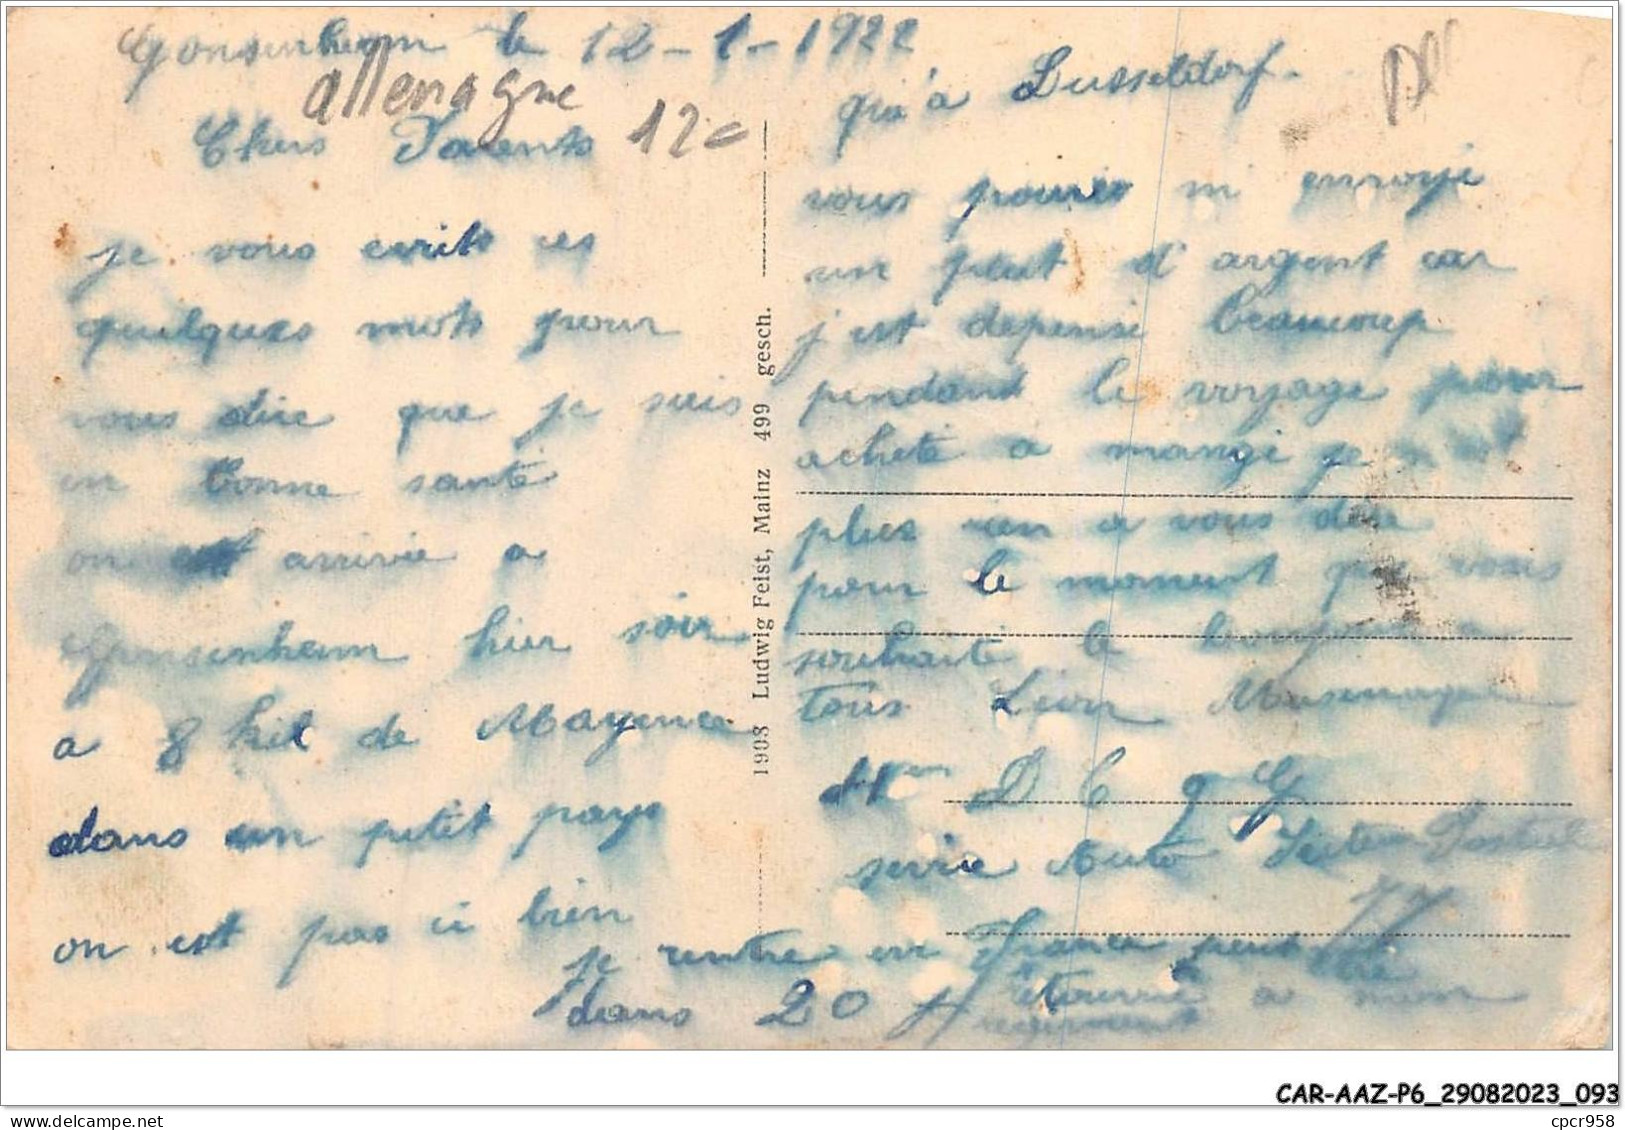 Gonsenheim le 12-1-1922
allemagne
12
Chers Parents
je vous ecrits ces
quelques mots pour
vous dire que je suis
en bonne santé
on est arrivée a
Gonsenheim hier soir
a 8 kil de Mayence
dans un petit pays
on est pas si bien
1903 Ludwig Feist, Mainz 499 gesch.
qu'à Dusseldorf.
vous pourez m'envoyé
un peut d'argent car
j'est depensé beaucoup
pendant le voyage pour
acheté a mangé je
plus rien a vous dire
pour le moment que vous
souhaité le bonjour a
tous Léon
D C 9 G
servie Auto Secteur Postal
77
je rentre en France peut être
dans 20 j etourné a mon
regiment
CAR-AAZ-P6_29082023_093
delcampe.net
cpcr958